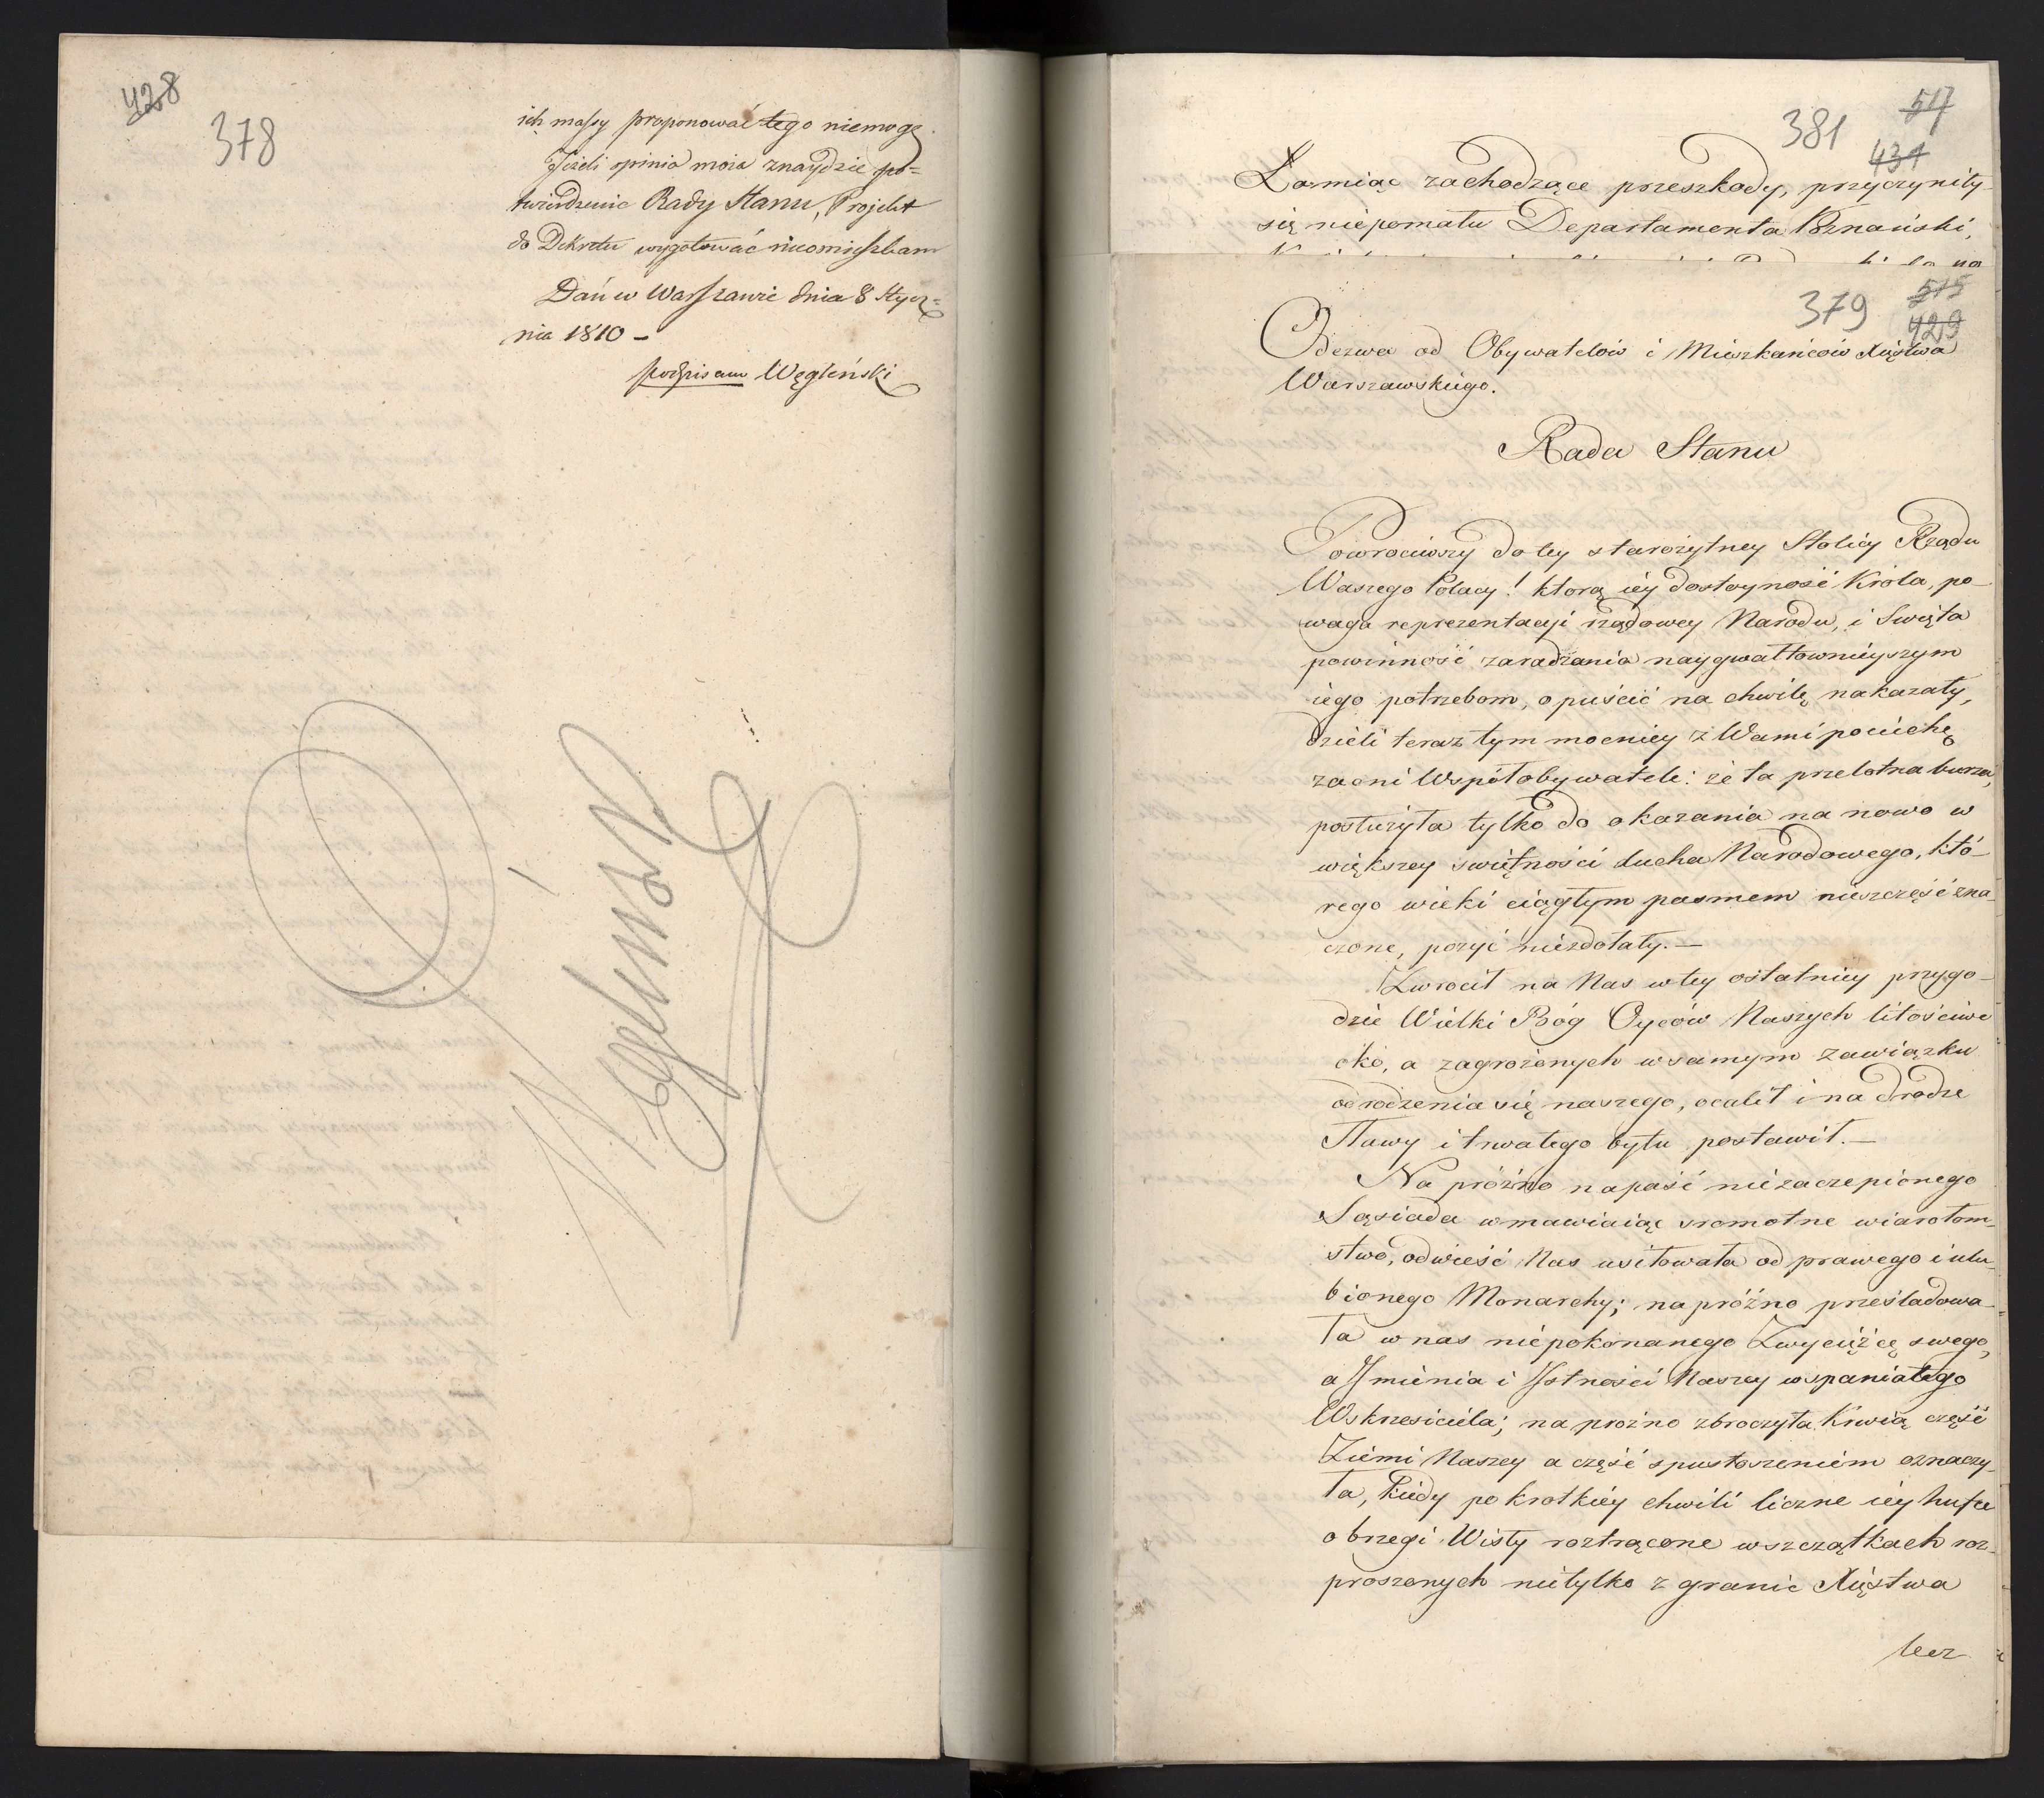 428
378
ich massy proponować tego niemogę.
Jeżeli opinia moia znaydzie po=
twierdzenie Rady Stanu, Projekt
do Dekretu wygotować nieomieszkam
Dań w Warszawie dnia 8 Stycz=
nia 1810 –
podpisano Węgleński
Węgleński
517
381
431
Łamiąc zachodzące przeszkody, przyczyniły
się niepomału Departamenta Poznański,
515
379
429
Odezwa od Obywatelów i Mieszkańców Xięstwa
Warszawskiego.
Rada Stanu
Powrociwszy do tey starożytney Stolicy Rządu
Waszego Polacy! ktorą iey dostoyność Króla, po–
waga reprezentacyi rządowey Narodu, i Swięta
powinność zaradzania naygwałtownieyszym
iego potrzebom, opuścić na chwilę nakazały,
dzieli teraz tym mocniey z Wami pociechę
zacni Współobywatele: że ta przelotna burza,
posłużyła tylko do okazania na nowo w
większey świetności ducha Narodowego, któ–
rego wieki ciągłym pasmem nieszczęść zna–
czone, pożyć niezdołały.—
Zwrocił na Nas w tey ostatniey przygo–
dzie Wielki Bóg Oyców Naszych litościwe
oko, a zagrożonych w samym zawiązku
odrodzenia się naszego, ocalił i na drodze
Sławy i trwałego bytu postawił.—
Na próżno napaść niezaczepionego
Sąsiada wmawiaiąc sromotne wiarołom–
stwo, odwieść Nas usiłowała od prawego i ulu–
bionego Monarchy; na próżno prześladowa–
ła w nas niepokonanego Zwycięźcę swego,
a Jmienia i Jstności Naszey wspaniałego
Wskrzesiciela; na prożno zbroczyła Krwią część
Ziemi Naszey a część spustoszeniem oznaczy–
ła, Kiedy po krotkiey chwili liczne iey hufce
o brzegi Wisły roztrącone w szczątkach roz–
proszonych nietylko z granic Xięstwa
lecz